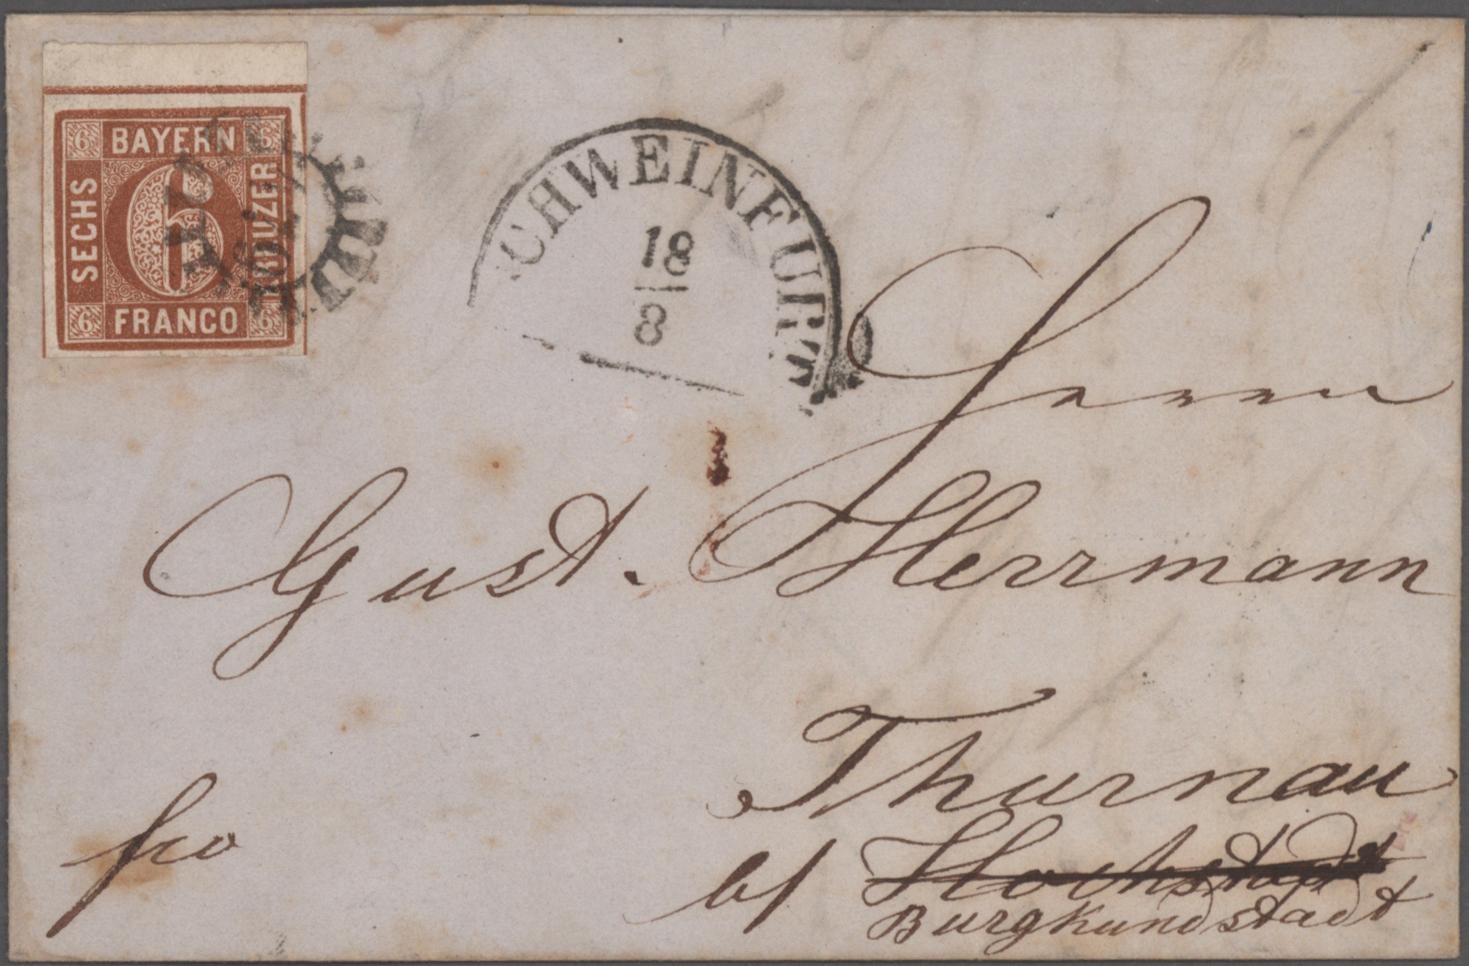 6 BAYERN 6
SECHS 6 KREUZER
6 FRANCO 6
SCHWEINFURT
18
8
Herrn
Gust. Herrmann
Thurnau
b/ Hochstadt
Burgkundstadt
fco